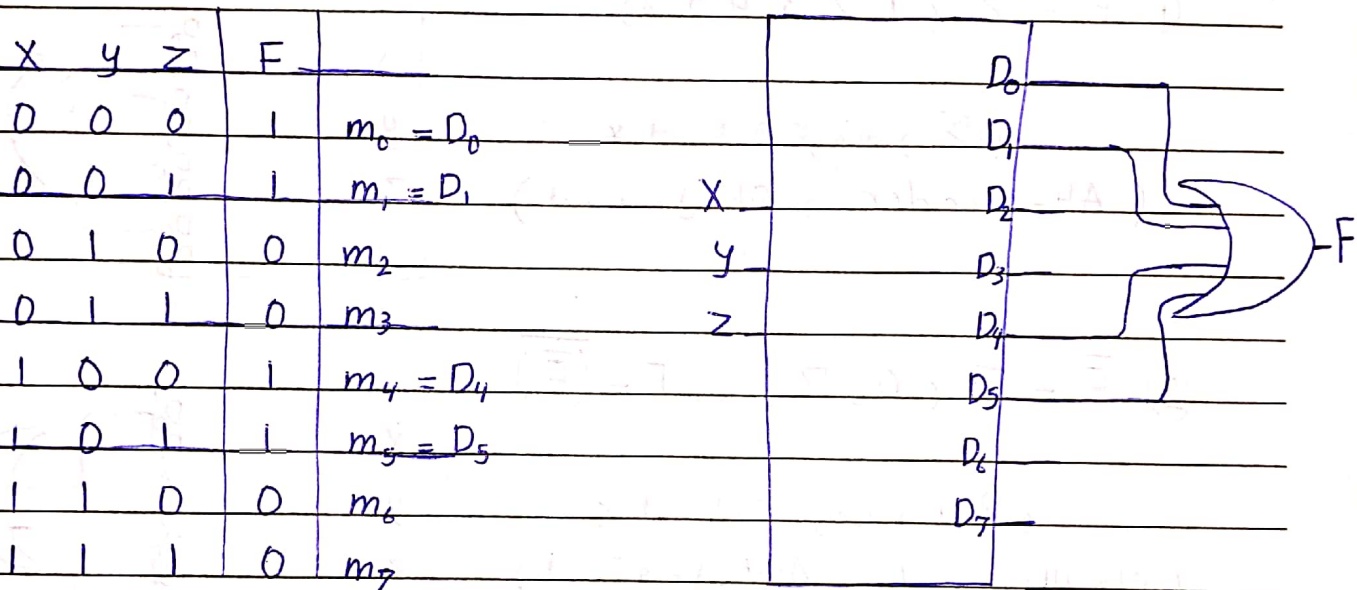 X y Z F
0 0 0 1 m₀ = D₀
0 0 1 1 m₁ = D₁
0 1 0 0 m₂
0 1 1 0 m₃
1 0 0 1 m₄ = D₄
1 0 1 1 m₅ = D₅
1 1 0 0 m₆
1 1 1 0 m₇
X
y
Z
D₀
D₁
D₂
D₃
D₄
D₅
D₆
D₇
F